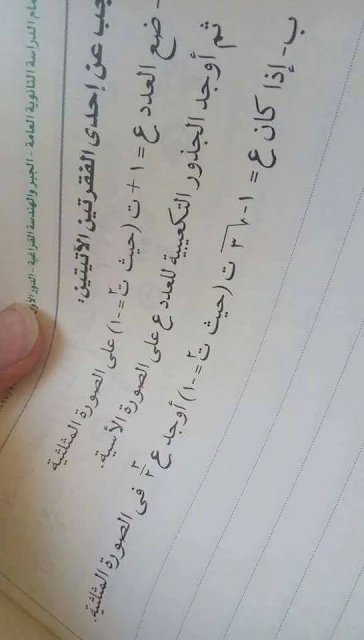 ـام الدراسة الثانوية العامة - الجبر والهندسة الفراغية - الدور الأول
ـجب عن إحدى الفقرتين الآتيتين:
- ضع العدد ع = ١ + ت (حيث ت٢ = -١) على الصورة المثلثية
ثم أوجد الجذور التكعيبية للعدد ع على الصورة الأسية.
ب- إذا كان ع = ١ - √٣ ت (حيث ت٢ = -١) أوجد ع٢/٣ فى الصورة المثلثية.